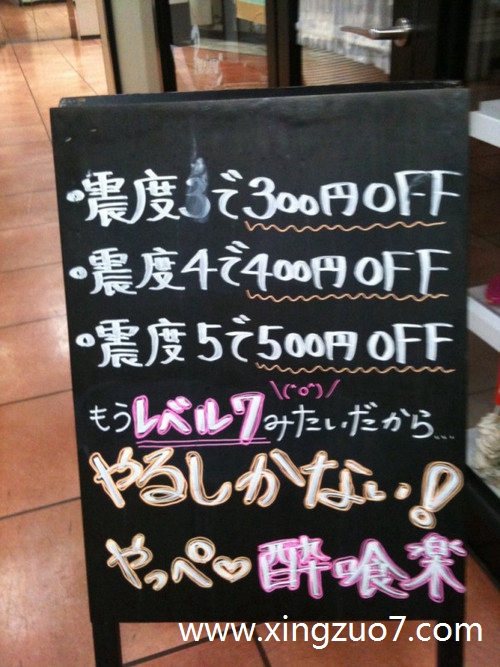 ・震度3で300円OFF
・震度4で400円OFF
・震度5で500円OFF
\(^o^)/
もうレベル7みたいだから...
やるしかない!
やっぺ♡酔喰楽
www.xingzuo7.com